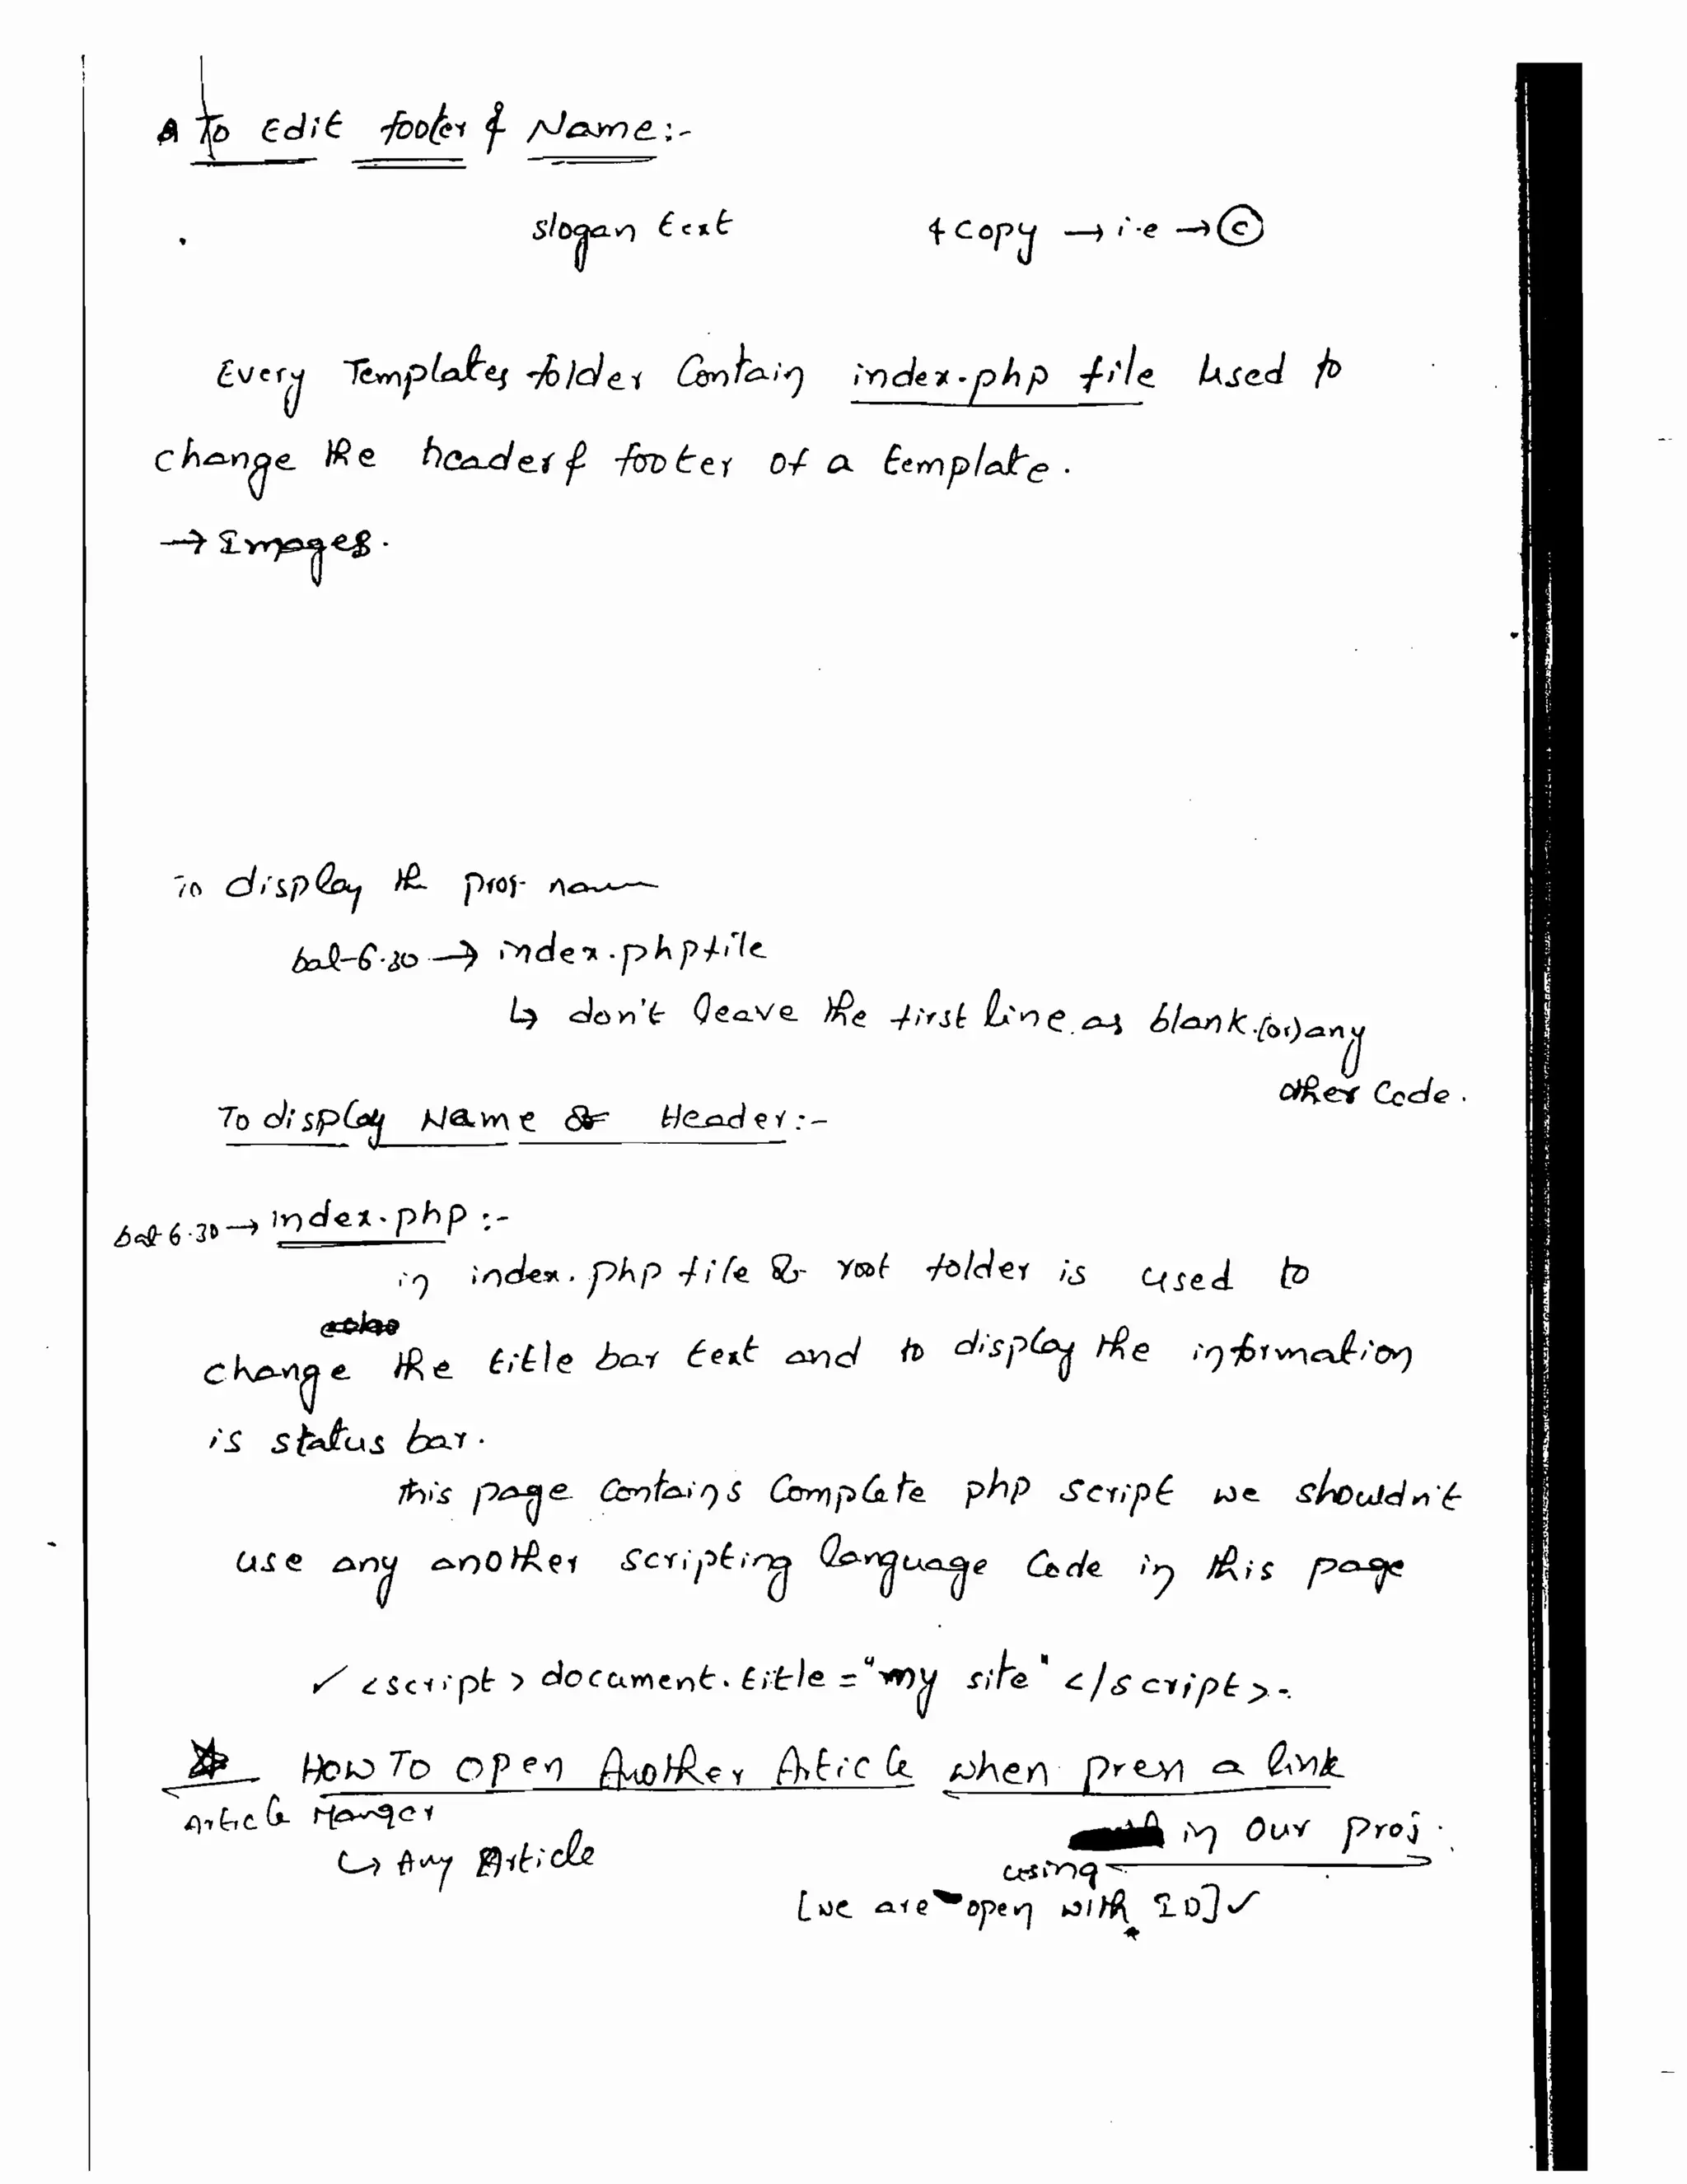 To Edit footer & Name:-
slogan text &copy → i.e → ©
Every Templates folder Contain index.php file used to
change the header & footer of a template.
→ Images.
To display the proj. name
bal-6.30 → index.php file
↳ don't leave the first line as blank (or) any
other Code.
To display Name & Header:-
bal-6.30 → index.php :-
in index.php file & root folder is used to
change the title bar text and to display the information
is status bar.
This page Contains Complete php script we shouldn't
use any another scripting language Code in this page
✓ <script> document.title = "my site" </script>.
☆ HOW TO OPEN Another Article when press a link
in our proj.
Article Manger
↳ Any Article
using
[we are open with ID] ✓